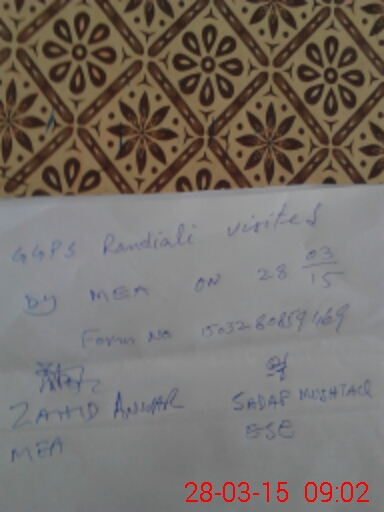 GGPS Randiali visited
by MEA ON 28 03/15
Form No 1503280859469
ZAHID ANWAR SADAF MUSHTAQ
MEA ESE
28-03-15 09:02